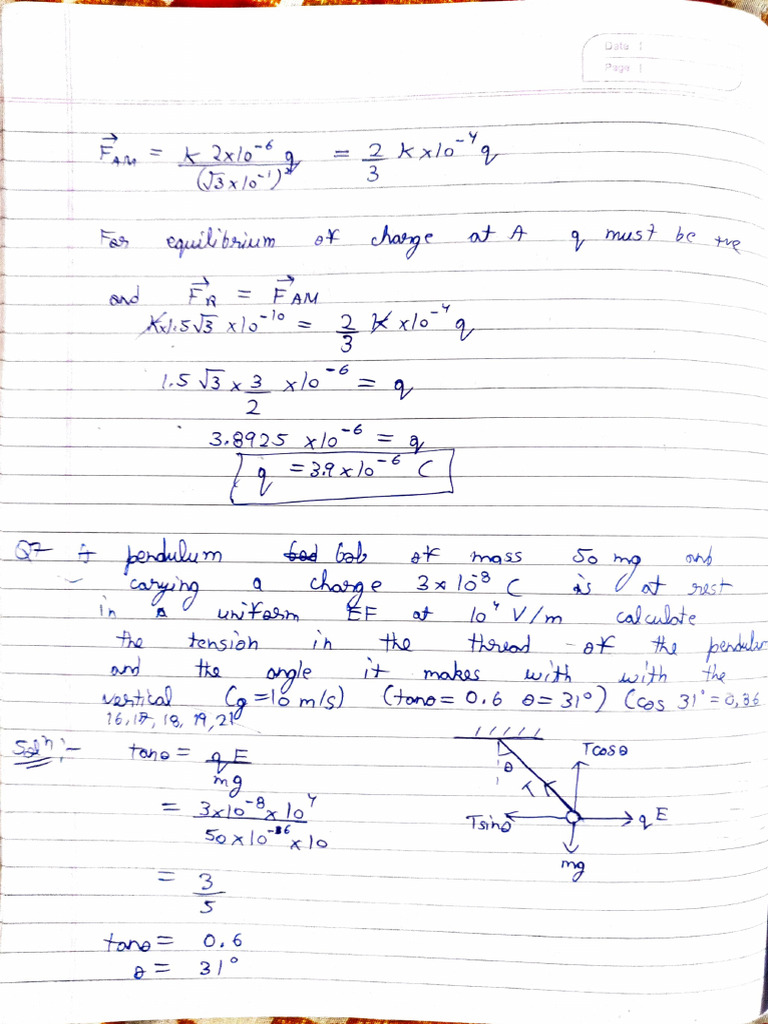 Date |
Page |
F⃗_AM = K 2×10⁻⁶ q / (√3×10⁻¹)² = 2/3 K×10⁻⁴ q
For equilibrium of charge at A q must be +ve
and F⃗_R = F⃗_AM
K×1.5√3 ×10⁻¹⁰ = 2/3 K×10⁻⁴ q
1.5√3 × 3/2 ×10⁻⁶ = q
3.8925 ×10⁻⁶ = q
q = 3.9×10⁻⁶ C
Q7 A pendulum bob of mass 50 mg and
carying a charge 3×10⁻⁸ C is at rest
in a uniform EF at 10⁴ V/m calculate
the tension in the thread of the pendular
and the angle it makes with with the
vertical (g=10 m/s) (tanθ= 0.6 θ= 31°) (cos 31°=0,36
16,17, 18, 19,21
Solⁿ:- tanθ = qE/mg
= 3×10⁻⁸×10⁴ / 50×10⁻⁶×10
= 3/5
tanθ = 0.6
θ = 31°
θ
Tcosθ
T
Tsinθ
qE
mg